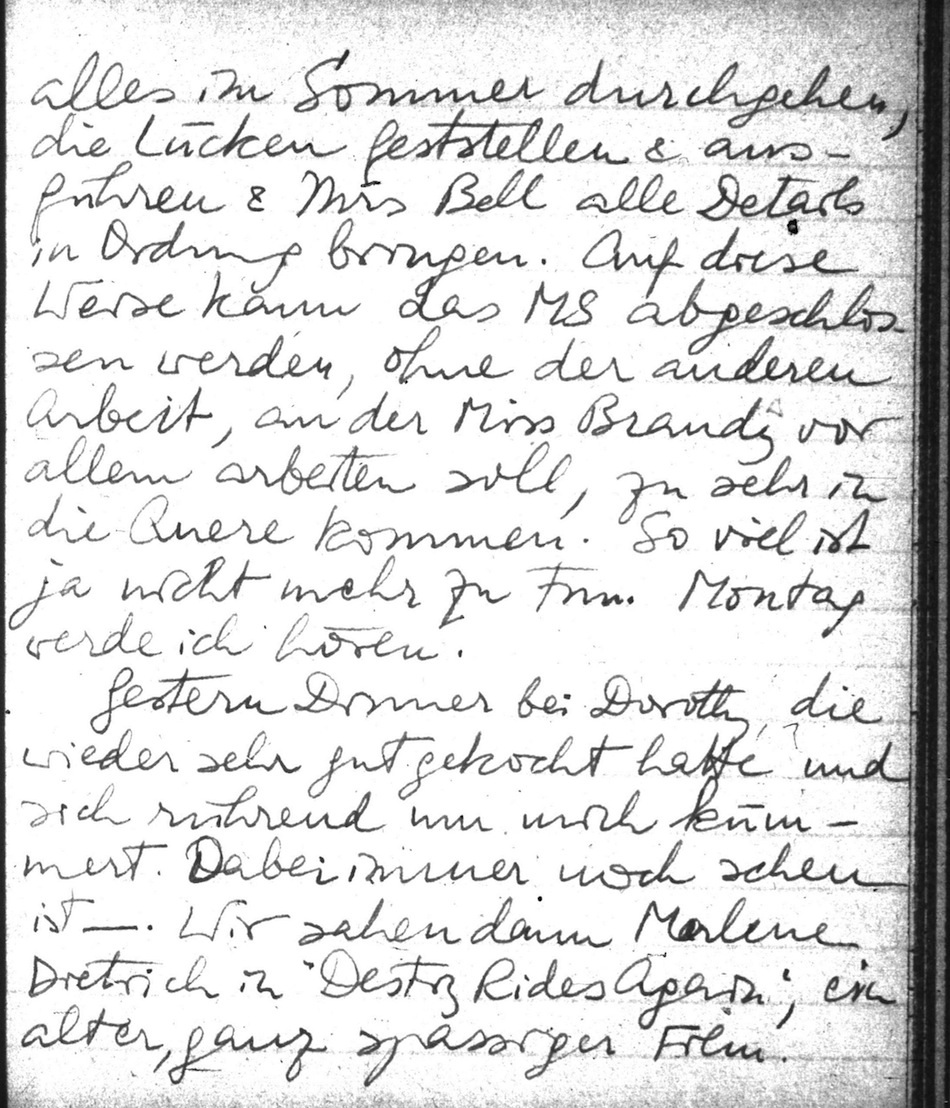 alles im Sommer durchgehen,
die Lücken feststellen & aus-
führen & Miss Bell alle Details
in Ordnung bringen. Auf diese
Weise kann das MS abgeschlos-
sen werden, ohne der anderen
Arbeit, an der Miss Brandy vor
allem arbeiten soll, zu sehr in
die Quere kommen. So viel ist
ja nicht mehr zu tun. Montag
werde ich hören.
Gestern Dinner bei Dorothy, die
wieder sehr gut gekocht hatte und
sich rührend um mich küm-
mert. Dabei immer noch scheu
ist —. Wir sahen dann Marlene
Dietrich in "Destry Rides Again", ein
alter, ganz spassiger Film.